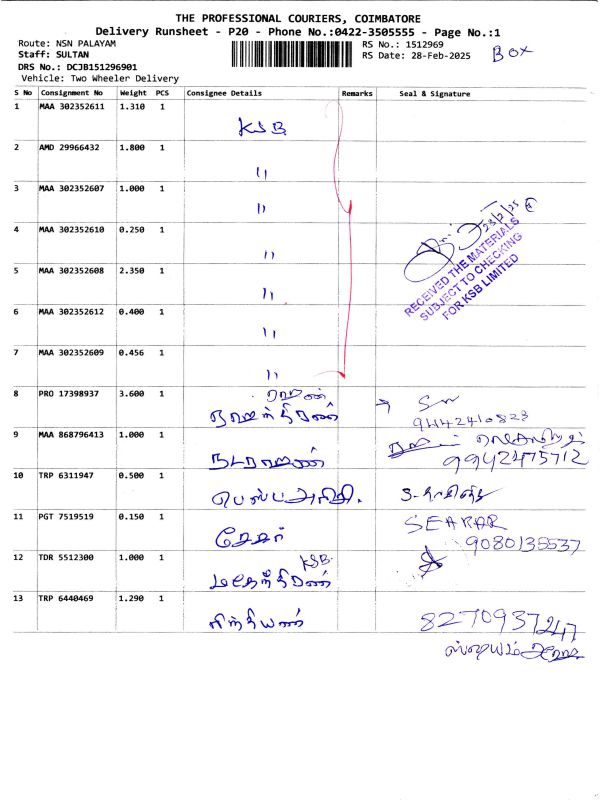 THE PROFESSIONAL COURIERS, COIMBATORE
Delivery Runsheet - P20 - Phone No.:0422-3505555 - Page No.:1
Route: NSN PALAYAM
Staff: SULTAN
DRS No.: DCJB151296901
Vehicle: Two Wheeler Delivery
RS No.: 1512969
RS Date: 28-Feb-2025
BOX
S No Consignment No Weight PCS Consignee Details Remarks Seal & Signature
1 MAA 302352611 1.310 1 KSB
2 AMD 29966432 1.800 1 11
3 MAA 302352607 1.000 1 11
4 MAA 302352610 0.250 1 11
5 MAA 302352608 2.350 1 11
6 MAA 302352612 0.400 1 11
7 MAA 302352609 0.456 1 11
RECEIVED THE MATERIALS
SUBJECT TO CHECKING
FOR KSB LIMITED
8 PRO 17398937 3.600 1
9442410823
9 MAA 868796413 1.000 1 நடராஜன்
9942475712
10 TRP 6311947 0.500 1
11 PGT 7519519 0.150 1 சேகர் SEAKAR
9080135537
12 TDR 5512300 1.000 1 KSB
13 TRP 6440469 1.290 1
8270937247